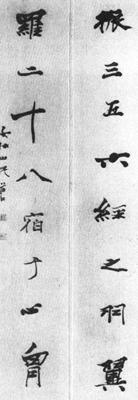 振三五六經之羽翼
羅二十八宿于心胷